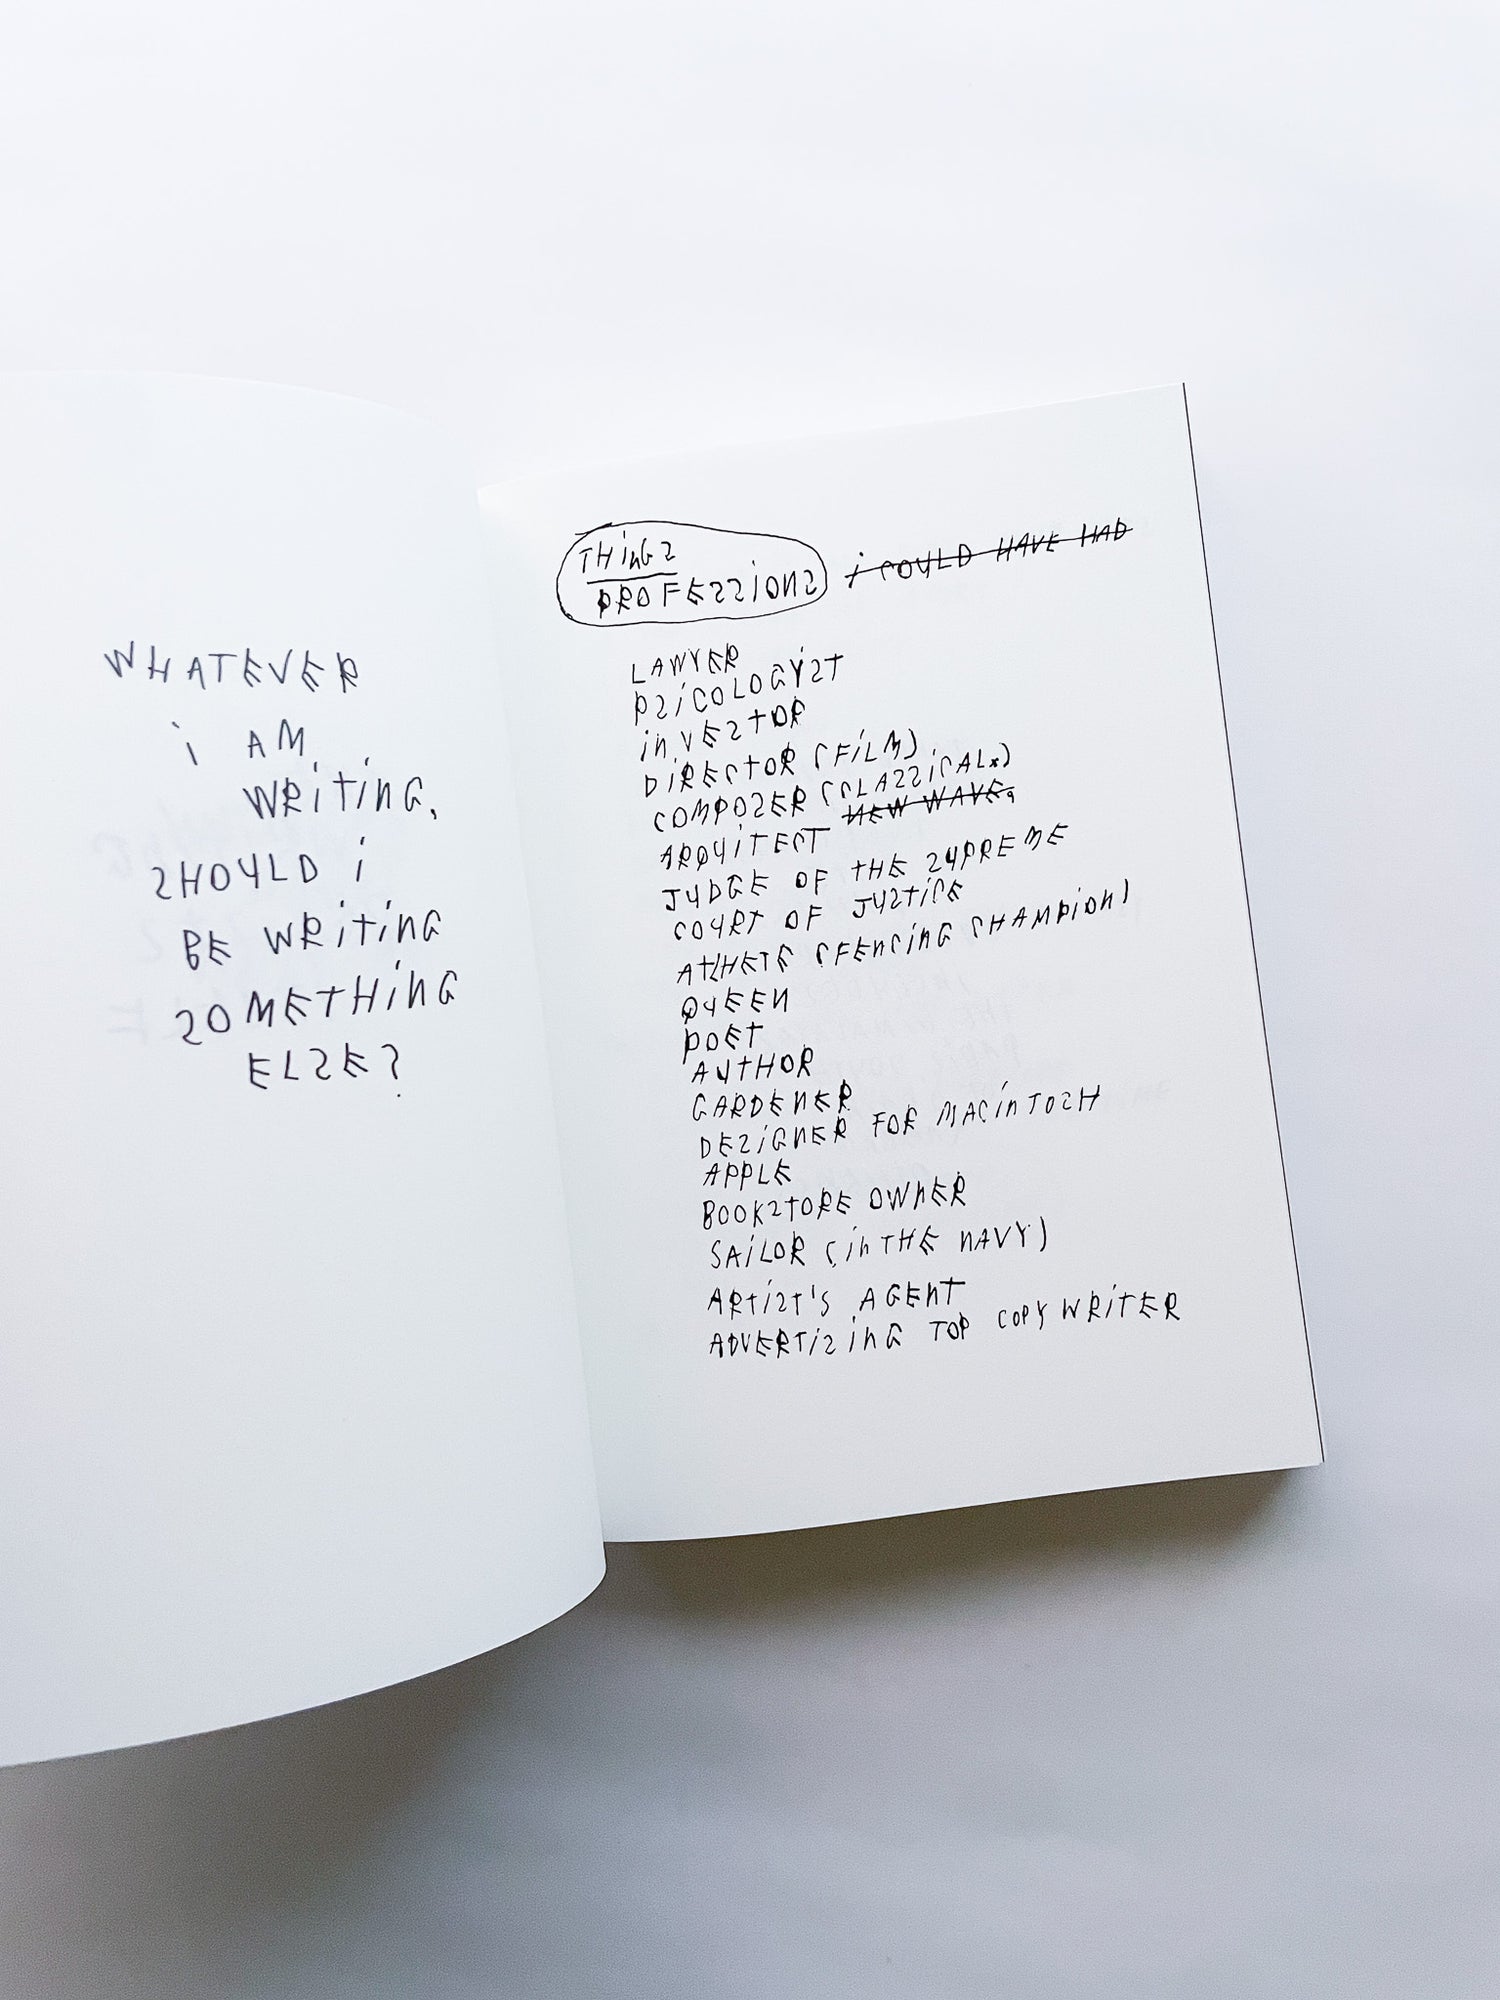 WHATEVER
i AM
WRiTinG,
SHOULD i
BE WRiTinG
SOMETHinG
ELSE?
THinGS
PROFESSiONS i COULD HAVE HAD
LAWYER
PSiCOLOGYST
inVESTOR
DiRECTOR (FiLM)
COMPOSER (CLASSiCAL)
NEW WAVE,
ARQUiTECT
JUDGE OF THE SUPREME
COURT OF JUSTiCE
ATLHETE (FENCiNG CHAMPiON)
QUEEN
POET
AUTHOR
GARDENER
DESiGNER FOR MACinTOSH
APPLE
BOOKSTORE OWNER
SAiLOR (in THE NAVY)
ARTiST'S AGENT
ADVERTiSinG TOP COPY WRiTER